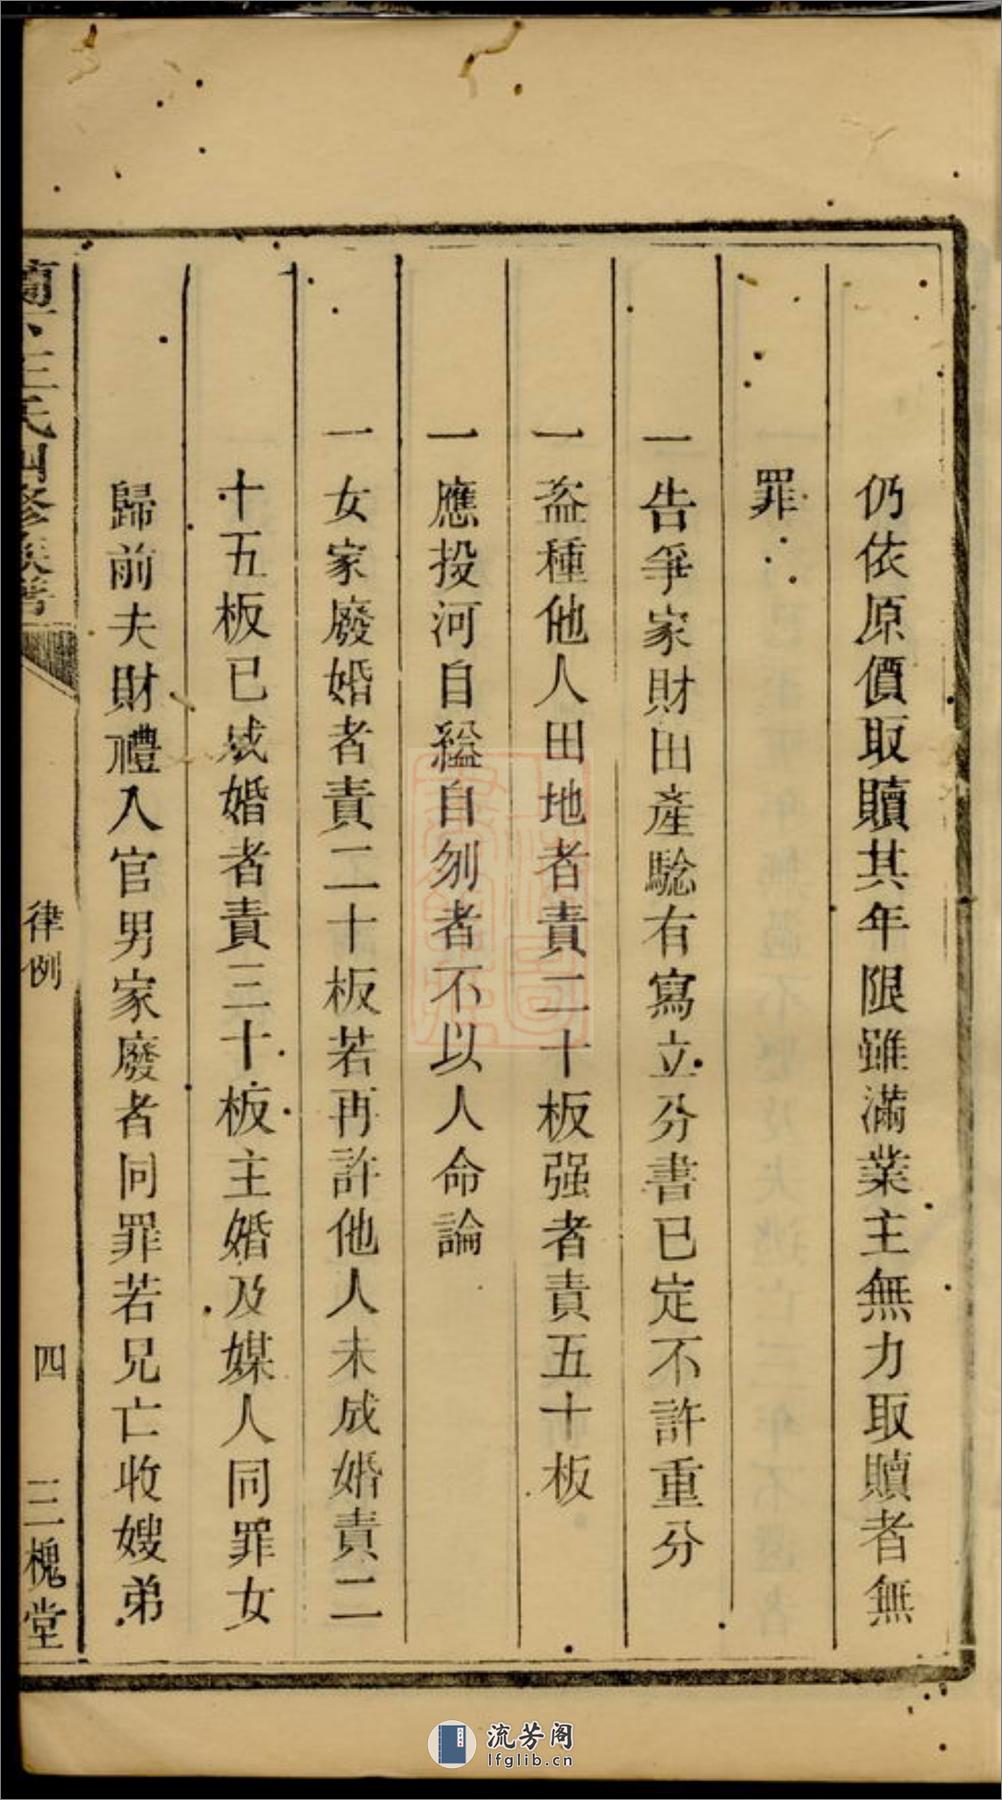 仍依原價取贖其年限雖滿業主無力取贖者無
罪
一告爭家財田產騐有寫立分書已定不許重分
一盗種他人田地者責二十板强者責五十板
一應投河自縊自刎者不以人命論
一女家廢婚者責二十板若再許他人未成婚責二
十五板已成婚者責三十板主婚及媒人同罪女
歸前夫財禮入官男家廢者同罪若兄亡收嫂弟
王氏四修族譜
律例
四
三槐堂
流芳阁
lfglib.cn